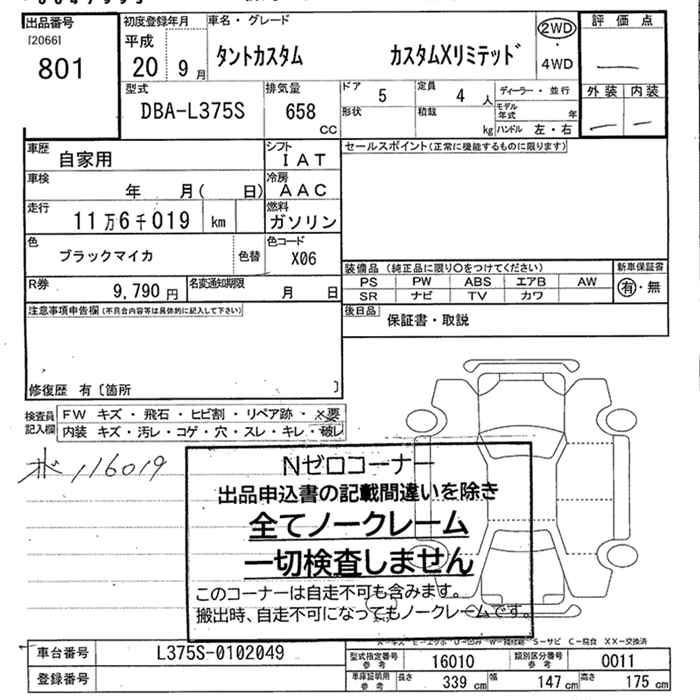 出品番号
[2066]
801
初度登録年月
平成
20 9月
車名・グレード
タントカスタム カスタムXリミテッド
2WD
・
4WD
評価点
外装 内装
型式
DBA-L375S
排気量
658
cc
ドア 5
定員 4 人
形状
積載 kg
ディーラー・並行
モデル年式 年
ハンドル 左・右
車歴 自家用
シフト IAT
車検 年 月( 日)
冷房 AAC
走行 11万6千019 km
燃料 ガソリン
色 ブラックマイカ
色替
色コード X06
R券 9,790円
名変通知期限 月 日
セールスポイント(正常に機能するものに限ります)
装備品(純正品に限り〇をつけてください)
新車保証書
PS PW ABS エアB AW
SR ナビ TV カワ
有・無
後日品 保証書・取説
注意事項申告欄(不具合内容等は具体的に記入して下さい)
修復歴 有〔箇所 〕
検査員記入欄
FW キズ・飛石・ヒビ割・リペア跡・X要
内装 キズ・汚レ・コゲ・穴・スレ・キレ・破レ
116019
Nゼロコーナー
出品申込書の記載間違いを除き
全てノークレーム
一切検査しません
このコーナーは自走不可も含みます。
搬出時、自走不可になってもノークレームです。
S-サビ C-腐食 XX-交換済
車台番号 L375S-0102049
登録番号
型式指定番号 参考 16010
類別区分番号 参考 0011
車庫証明用 参考
長さ 339 cm
幅 147 cm
高さ 175 cm